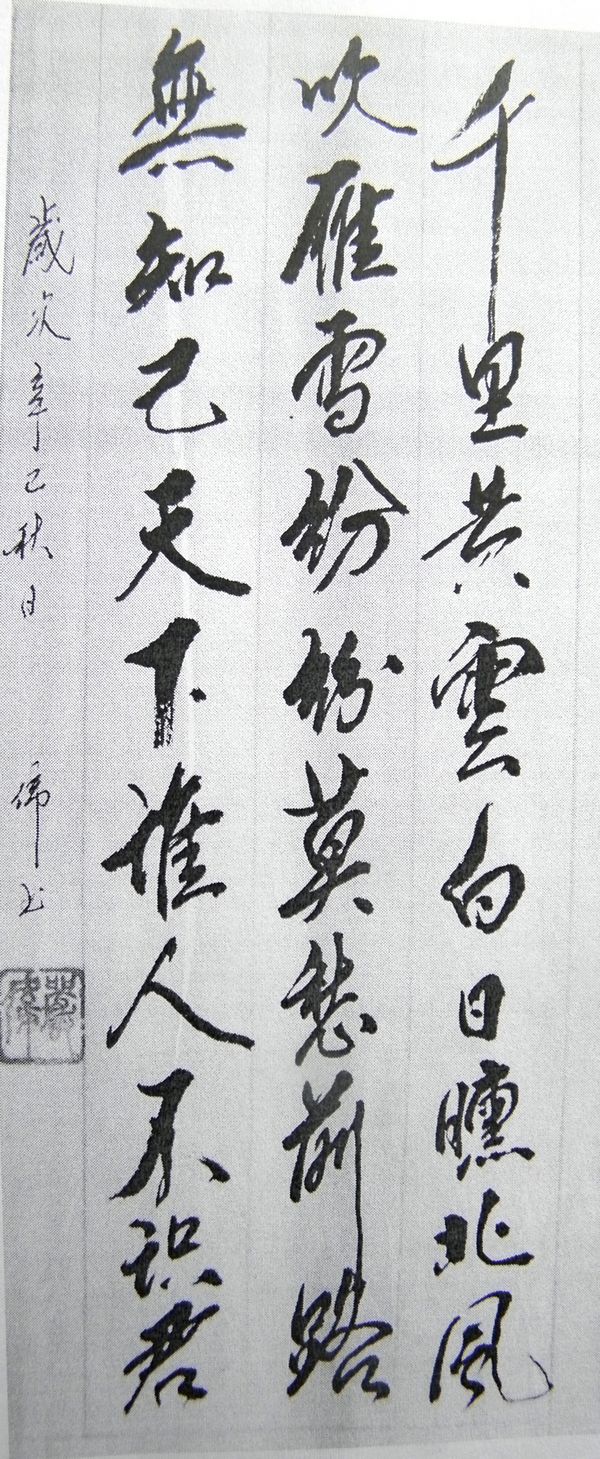 千里黄雲白日曛北風
吹雁雪紛紛莫愁前路
無知己天下谁人不识君
歲次辛巳秋日 偉书